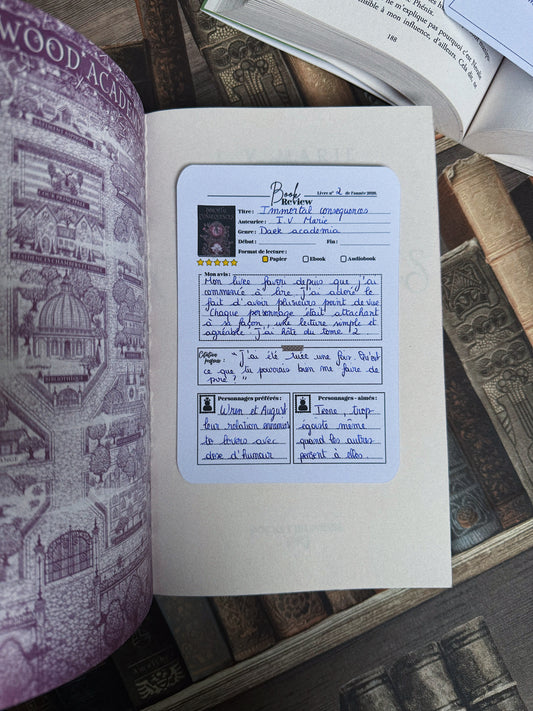 WOOD ACADE
Phénix.
ne m'explique pas pourquoi c'est
à mon influence, d'ailleurs. Cela dit, se
188
Book
Review
Livre n° 2 de l'année 2026.
IMMORTAL
CONSEQUENCES
Titre: Immortal consequences
Auteurice: I.V Marie
Genre: Dark academia
Début: Fin:
Format de lecture:
Papier Ebook Audiobook
Mon avis:
Mon livre favori depuis que j'ai
commencé à lire. J'ai adoré le
fait d'avoir plusieurs point de vue
Chaque personnage était attachant
à sa façon, une lecture simple et
agréable. J'ai hâte du tome 2.
Citation
"J'ai été tuée une fois. Qu'est
ce que tu pourrais bien me faire de
pire ?"
Personnages préférés:
Wren et August
leur relation ennemies
to lovers avec
dose d'humour
Personnages - aimés:
Irene, trop
égoïste même
quand les autres
pensent à elles.